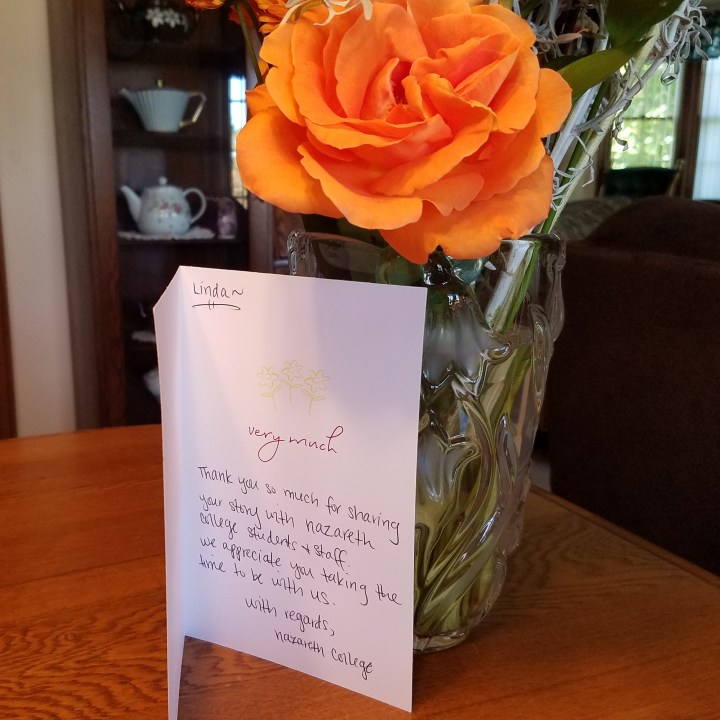 Linda~
very much
Thank you so much for sharing
your story with nazareth
college students & staff.
we appreciate you taking the
time to be with us.
with regards,
nazareth college